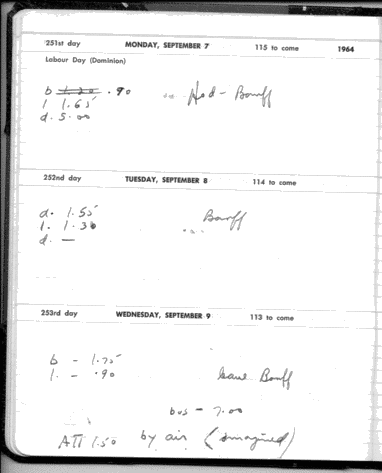 251st day MONDAY, SEPTEMBER 7 115 to come 1964
Labour Day (Dominion)
b 1.20 .90 - Banff
l 1.65
d. 5.00
252nd day TUESDAY, SEPTEMBER 8 114 to come
d. 1.55 Banff
l. 1.30
d. —
253rd day WEDNESDAY, SEPTEMBER 9 113 to come
b - 1.75
l. - .90 Banff
bus - 7.00
1.50 by air (imagined)